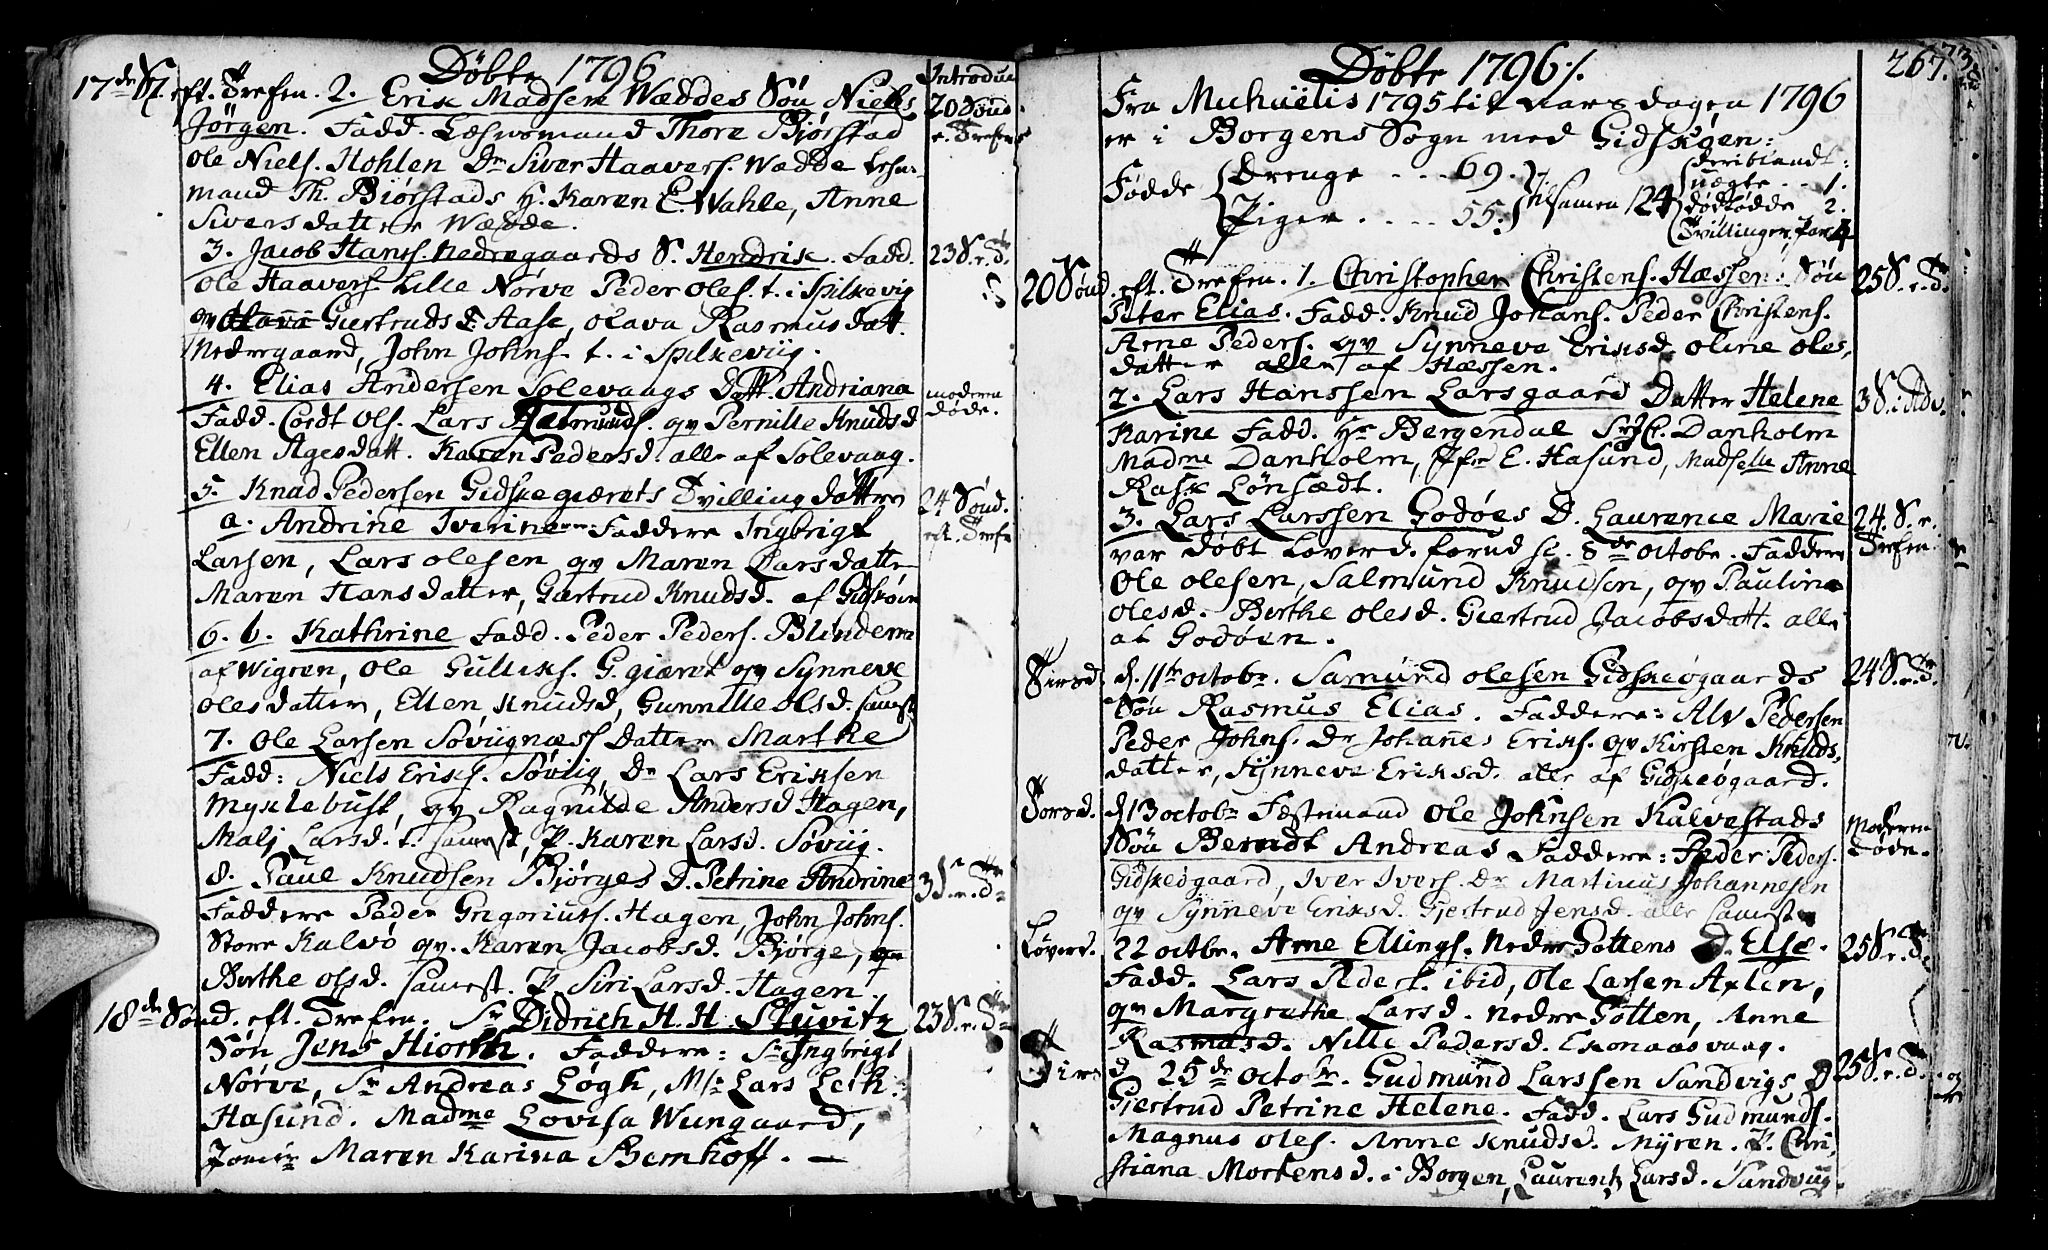 Døbte 1796
Introduc
17de S. eft. Trefen. 2. Erik Madsen Wæddes Søn Niels
20 Sønd
Jörgen. Fadd. Lænsmand Thore Bjørstad
e. Trefens
Ole Niels. Hohlen Dr Siver Haavers. Wædde Lehns-
mand Th. Biørstads H. Karen E. Wahle, Anne
Siversdatter Wædde.
3. Jacob Hans. Nedregaards S. Hendrik. Fadd.
23 S. e. Tr.
Ole Haavers. Lille Nörve Peder Oles. t. i Spilkevig
qv Giertruds D. Aase, Olava Rasmusdatt.
Nedregaard, John Johns. t. i Spilkeviig.
4. Elias Andersen Solevaags Datt. Andriana
moderen
Fadd. Cordt Ols. Lars qv Pernille Knudsd
døde.
Ellen Agesdatt. Karen Pedersd. alle af Solevaag.
5. Knud Pedersen Gidskegiærets Tvilling døttre
24 Sønd.
a. Andrine Iverine Faddere Ingbrigt
eft. Trefn
Larsen, Lars Olesen qv Maren Larsdatter
Maren Hansdatter, Gærtrud Knudsd. af Gidskøen
6. b. Kathrine Fadd. Peder Peders. Blindem
af Wigren, Ole Gulliks. G.giæret qv Synneve
Olesdatter, Ellen Knudsd, Gunnille Olsd. samest
7. Ole Larsen Søvignæss Datter Marthe
Fadd: Niels Eriks. Søvig, Dr Lars Eriksen
Myklebust, qv Ragnilde Andersd Hagen,
Malj Larsd. t. samest, P. Karen Larsd. Søviig.
8. Paul Knudsen Bjørges D. Petrine Andrine
3 S. e. Tr
Faddere Peder Gregorius. Hagen, John Johns.
Store Kalvö qv. Karen Jacobsd. Bjørge,
Berthe Olsd. samest. P. Siri Larsd. Hagen
18de Sønd. eft. Trefen. Sr Didrich H. H. Stuvitz
23 S. e. Tr
Søn Jens Hiorth. Faddere: Sr Ingbrigt
Nörve, Sr Andreas Løgh, Mr. Lars Leth.
Hasund. Madme Lovisa Wungaard,
Jomfr Maren Karina Bernhoff. —
Døbte 1796 /.
267.
Fra Michaëlis 1795 til aarsdagen 1796
er i Borgens Sogn med Gidskøen:
Fødde Drenge . . . 69. Piger . . . . 55. tilsamen 124
deriblandt:
uægte . . 1.
dødfødde 2.
Tvillinger, Par 4
20 Sønd. eft. Trefen. 1. Christopher Christens. Hæssens Søn
25 S. e. Tr.
Peter Elias. Fadd. Knud Johans. Peder Christens.
Arne Peders. qv Synneve Eriksd. Oline Oles,
datter alle af Hæssen.
2. Lars Hanssen Larsgaard Datter Helene
3 S. i Adv.
Karine Fadd. Hr Bergendal Sr Danholm
Madme Danholm, Jfr E. Hasund, Madselle Anne
Rask Lönsædt.
3. Lars Larssen Godöes D. Laurence Marie
24. S. e.
var døbt Loverd. forud sc. 8de Octobr. Faddere
Trefen.
Ole Olesen, Salmund Knudsen, qv Pauline
Olesd. Berthe Olesd. Giertrud Jacobsdatt. alle
af Godøen.
Tirsd. d. 11te Octobr. Samund Olesen Gidskeögaards
24 S. e. Tr.
Søn Rasmus Elias. Faddere: Alv Pedersen
Peder Johns. Dr Johañes Eriks. qv Kirsten Knuds,
datter, Synneve Eriksd. alle af Gidskeøgaard.
Torsd. d 13 Octobr Fæstemand Ole Johnsen Kalvestads
Moderen
Søn Berndt Andreas Faddere: Peder Peders.
døde.
Gidskeøgaard, Iver Ivers. Dr Martinus Johannesen
qv Synneve Eriksd. Gjertrud Jensd. alle samest
Løverd. 22 Octbr. Arne Ellings. Nedre Gottens D. Else.
25 S. e. Tr
Fadd. Lars Peders. ibid, Ole Larsen Axlen,
qv Margrethe Larsd. Nedre Gotten, Anne
Rasmusd. Nille Pedersd. Exonaasvaag.
Tirsd. 25de Octobr. Gudmund Larssen Sandvigs D
25 S. e. Tr.
Gjertrud Petrine Helene. Fadd. Lars Gudmunds.
Magnus Oles. Anne Knudsd. Myren. P. Chri,
stiana Mortensd. i Borgen, Laurentz Larsd. Sandvig.